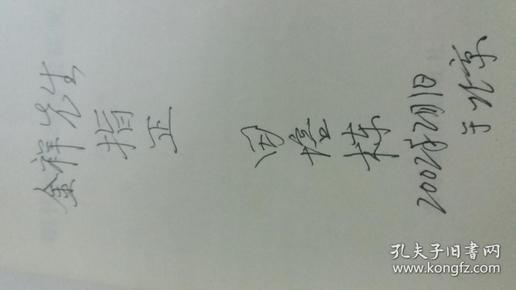 金祥先生
指正
2002年2月1日
于北京
孔夫子旧书网
www.kongfz.com